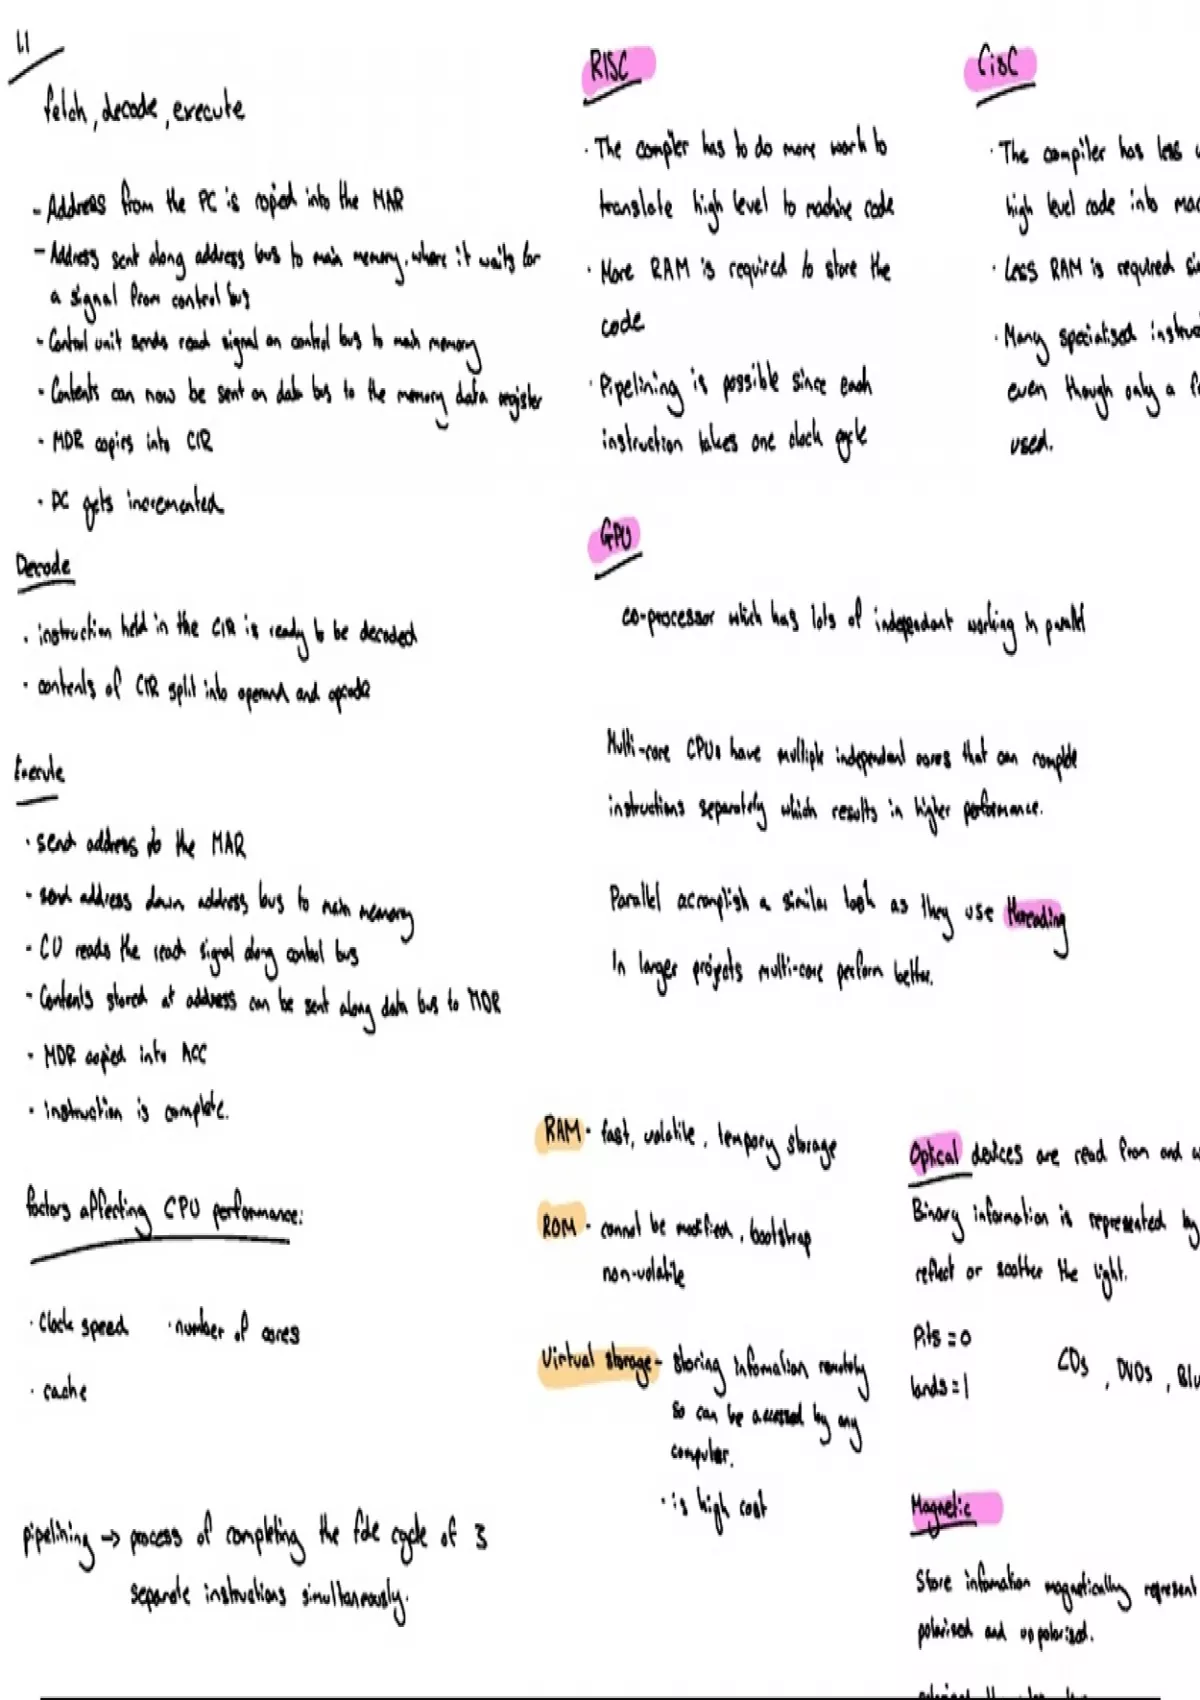 1.1
fetch, decode, execute
- Address from the PC is copied into the MAR
- Address sent along address bus to main memory, where it waits for
a signal from control bus
- Control unit sends read signal on control bus to main memory
- Contents can now be sent on data bus to the memory data register
- MDR copies into CIR
- PC gets incremented
Decode
- instruction held in the CIR is ready to be decoded
- contents of CIR split into operand and opcode
Execute
- send address to the MAR
- send address down address bus to main memory
- CU reads the read signal along control bus
- Contents stored at address can be sent along data bus to MDR
- MDR copied into ACC
- instruction is complete.
factors affecting CPU performance:
· Clock speed · number of cores
· cache
pipelining → process of completing the fde cycle of 3
separate instructions simultaneously.
RISC
· The compiler has to do more work to
translate high level to machine code
· More RAM is required to store the
code
· Pipelining is possible since each
instruction takes one clock cycle
CISC
· The compiler has less
high level code into mac
· Less RAM is required si
· Many specialised instruc
even though only a f
used.
GPU
co-processor which has lots of independant working in parallel
Multi-core CPUs have multiple independent cores that can complete
instructions separately which results in higher performance.
Parallel accomplish a similar task as they use threading
In larger projects multi-core perform better.
RAM - fast, volatile, tempory storage
ROM - cannot be modified, bootstrap
non-volatile
Virtual storage - storing information remotely
so can be accessed by any
computer.
· is high cost
Optical devices are read from and w
Binary information is represented by
reflect or scatter the light.
Pits = 0
lands = 1
CDs, DVDs, Blu
Magnetic
Store infomation magnetically represent
polarised and unpolarised.